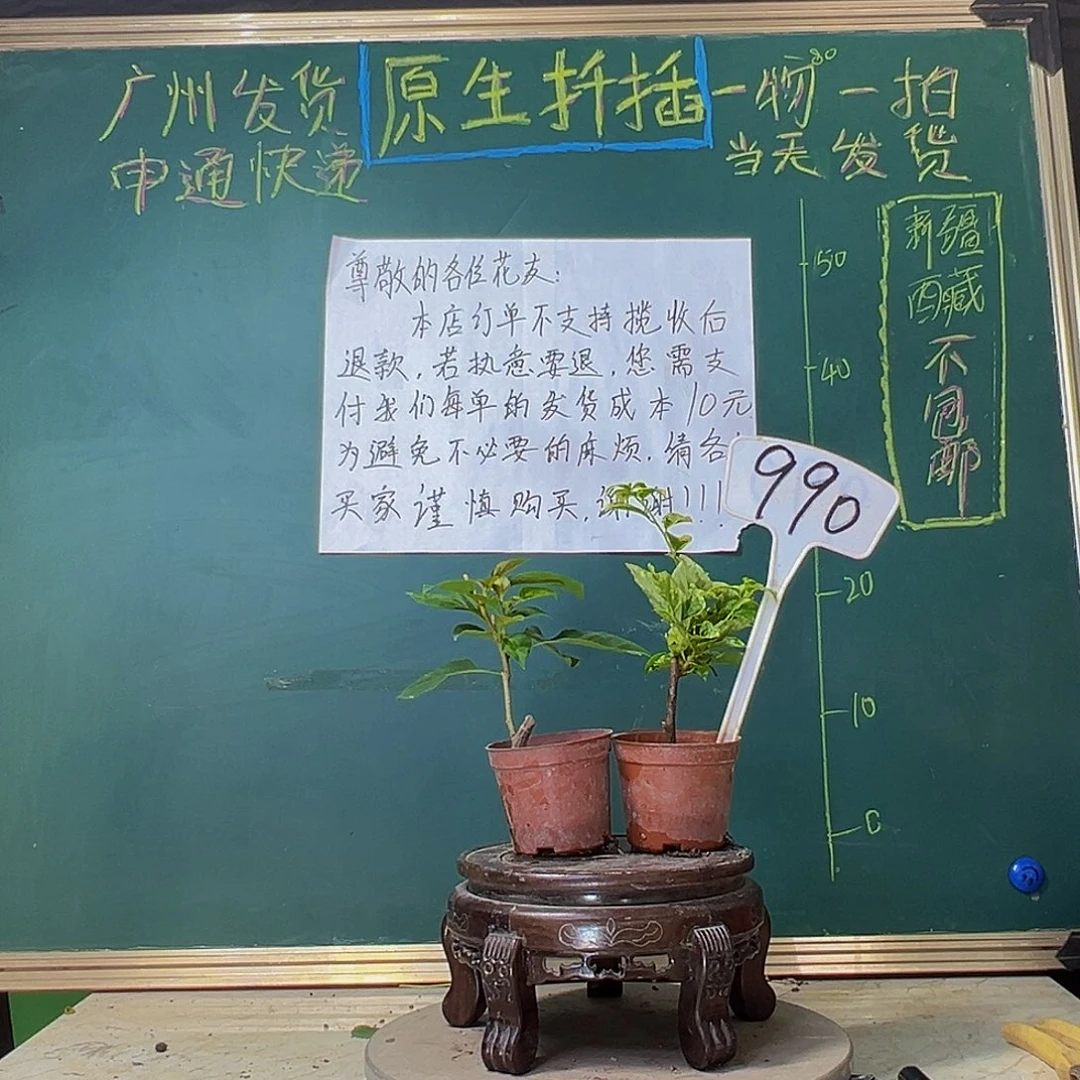 广州发货
申通快递
原生扦插
一物一拍
当天发货
80
尊敬的各位花友:
本店订单不支持揽收后
退款,若执意要退,您需支
付我们每单的发货成本10元
为避免不必要的麻烦.请各
买家谨慎购买,谢谢!!!
990
50
40
20
10
0
新疆
西藏
不
包
邮